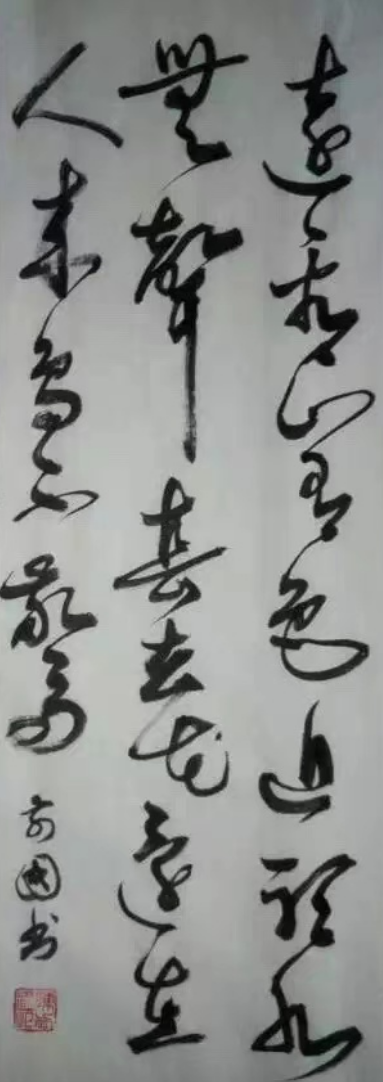 遠看山有色近聽水
無聲春去花還在
人来鳥不驚
國书